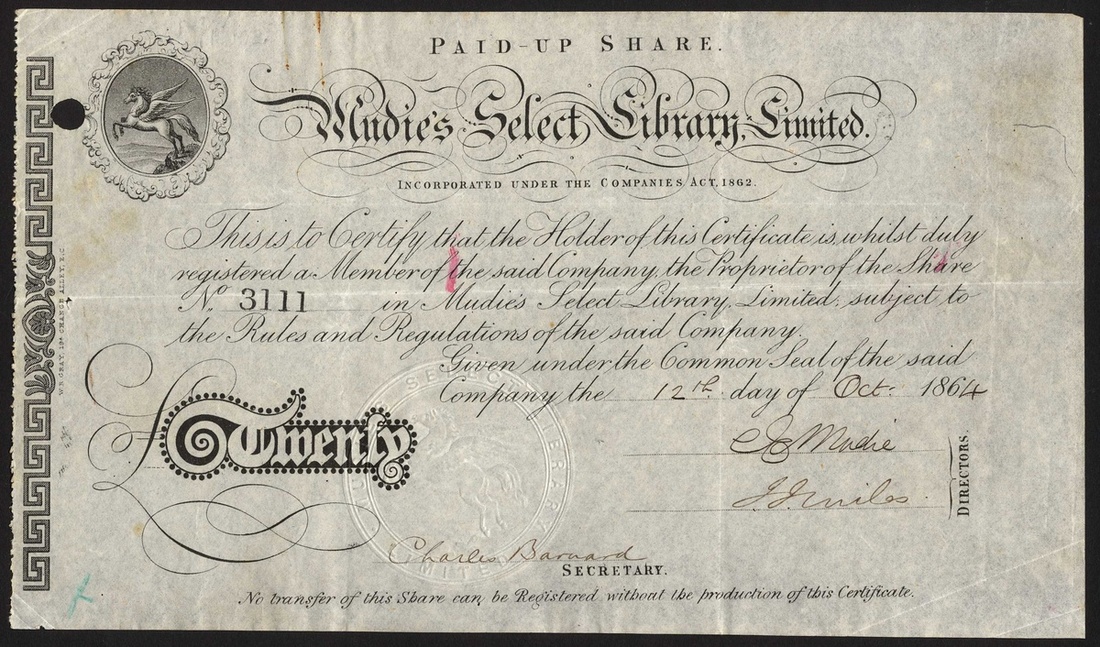 PAID-UP SHARE.
Mudie's Select Library, Limited.
INCORPORATED UNDER THE COMPANIES ACT, 1862.
This is to Certify that the Holder of this Certificate is, whilst duly
registered a Member of the said Company, the Proprietor of the Share
No. 3111 in Mudie's Select Library, Limited, subject to
the Rules and Regulations of the said Company.
Given under the Common Seal of the said
Company the 12th day of Oct: 1864
£ Twenty
SELECT LIBRARY
LIMITED
C E Mudie
J. J. Miles.
DIRECTORS.
Charles Barnard
SECRETARY.
No transfer of this Share can be Registered without the production of this Certificate.